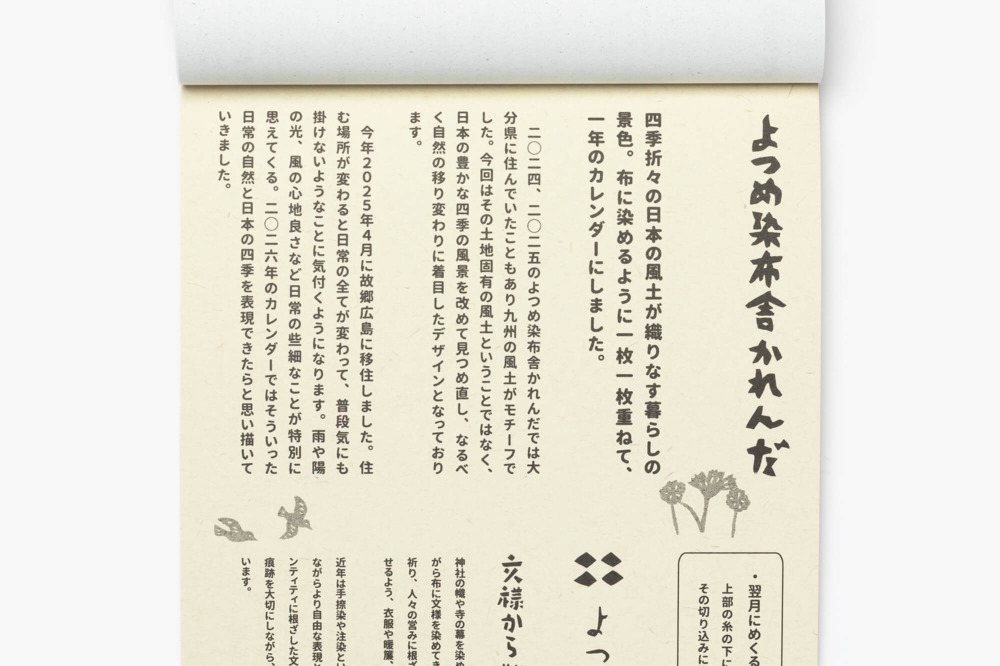 よつめ染布舎かれんだ
四季折々の日本の風土が織りなす暮らしの
景色。布に染めるように一枚一枚重ねて、
一年のカレンダーにしました。
二〇二四、二〇二五のよつめ染布舎かれんだでは大
分県に住んでいたこともあり九州の風土がモチーフで
した。今回はその土地固有の風土ということではなく、
日本の豊かな四季の風景を改めて見つめ直し、なるべ
く自然の移り変わりに着目したデザインとなっており
ます。
今年2025年4月に故郷広島に移住しました。住
む場所が変わると日常の全てが変わって、普段気にも
掛けないようなことに気付くようになります。雨や陽
の光、風の心地良さなど日常の些細なことが特別に
思えてくる。二〇二六年のカレンダーではそういった
日常の自然と日本の四季を表現できたらと思い描いて
いきました。
・翌月にめくる
上部の糸の下に
その切り込みに
よつ
文様から
神社の幟や寺の幕を染め
がら布に文様を染めてき
祈り、人々の営みに根ざ
せるよう、衣服や暖簾、
近年は手捺染や注染とい
ながらより自由な表現と
ンティティに根ざした文
痕跡を大切にしながら、
います。